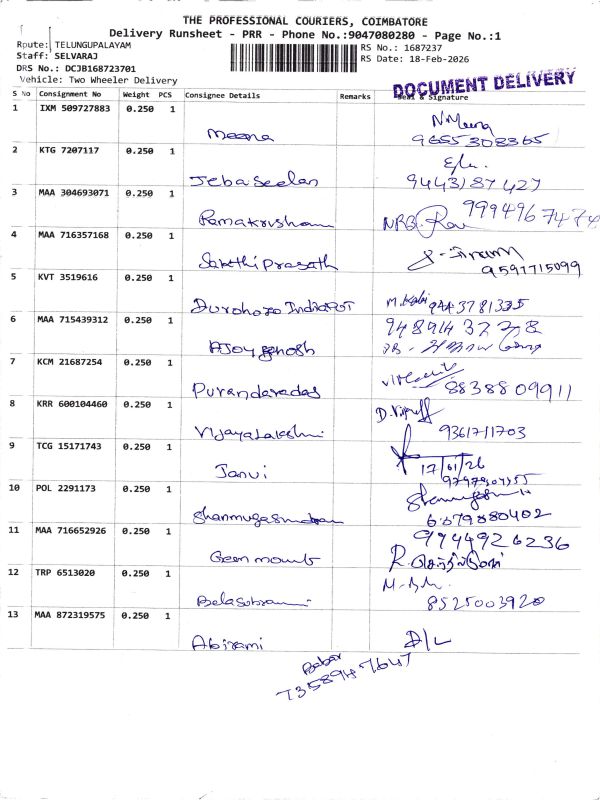 THE PROFESSIONAL COURIERS, COIMBATORE
Delivery Runsheet - PRR - Phone No.:9047080280 - Page No.:1
Route: TELUNGUPALAYAM
RS No.: 1687237
Staff: SELVARAJ
RS Date: 18-Feb-2026
DRS No.: DCJB168723701
Vehicle: Two Wheeler Delivery
DOCUMENT DELIVERY
S No Consignment No Weight PCS Consignee Details Remarks Seal & Signature
1 IXM 509727883 0.250 1
Meena N.Meena
9655308365
2 KTG 7207117 0.250 1
Jebaseelan
9443187427
3 MAA 304693071 0.250 1
9994967474
4 MAA 716357168 0.250 1
Sakthi Prasath
9597715099
5 KVT 3519616 0.250 1
9443781335
6 MAA 715439312 0.250 1
Ajoy ghosh
7 KCM 21687254 0.250 1
Purandaradas 8838809911
8 KRR 600104460 0.250 1
Vijayalakshmi
9361711703
9 TCG 15171743 0.250 1
Janvi
10 POL 2291173 0.250 1
11 MAA 716652926 0.250 1
9944926236
12 TRP 6513020 0.250 1
8525003920
13 MAA 872319575 0.250 1
Abirami D/L
Babar
7358947647